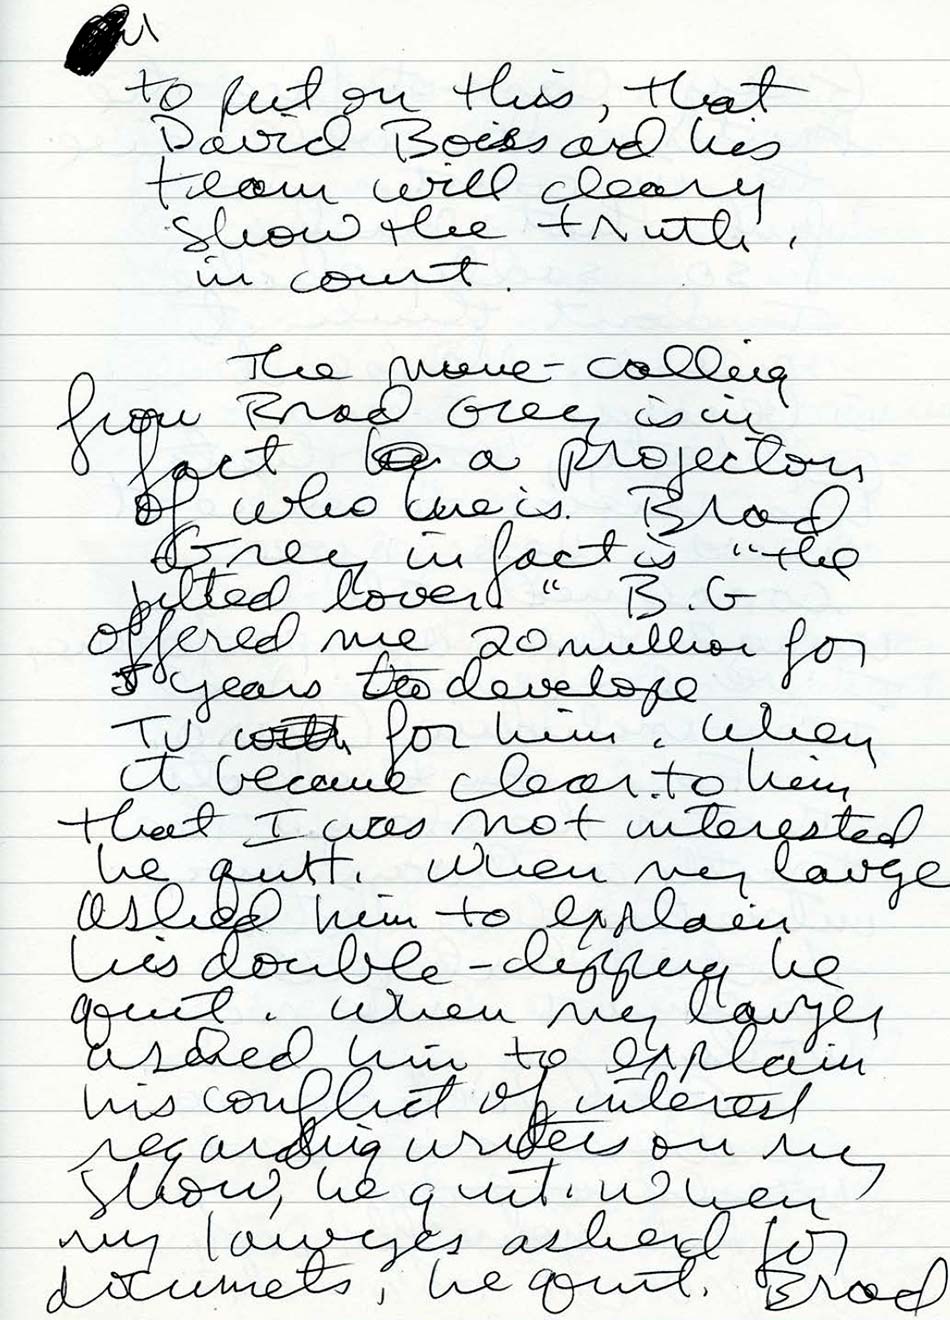 to put on this, that
David Boies and his
team will cleary
show the truth.
in court.
The name-calling
from Brad Grey is in
fact a projection
of who he is. Brad
Grey in fact is "the
jilted lover." B.G
offered me 20 million for
5 years to develope
TV for him. When
it became clear to him
that I was not interested
he quit. When my lawye
asked him to explain
his double-dipping he
quit. When my lawyer
asked him to explain
his conflict of interest
regarding writers on my
show, he quit. When
my lawyers asked for
documets, he quit. Brad